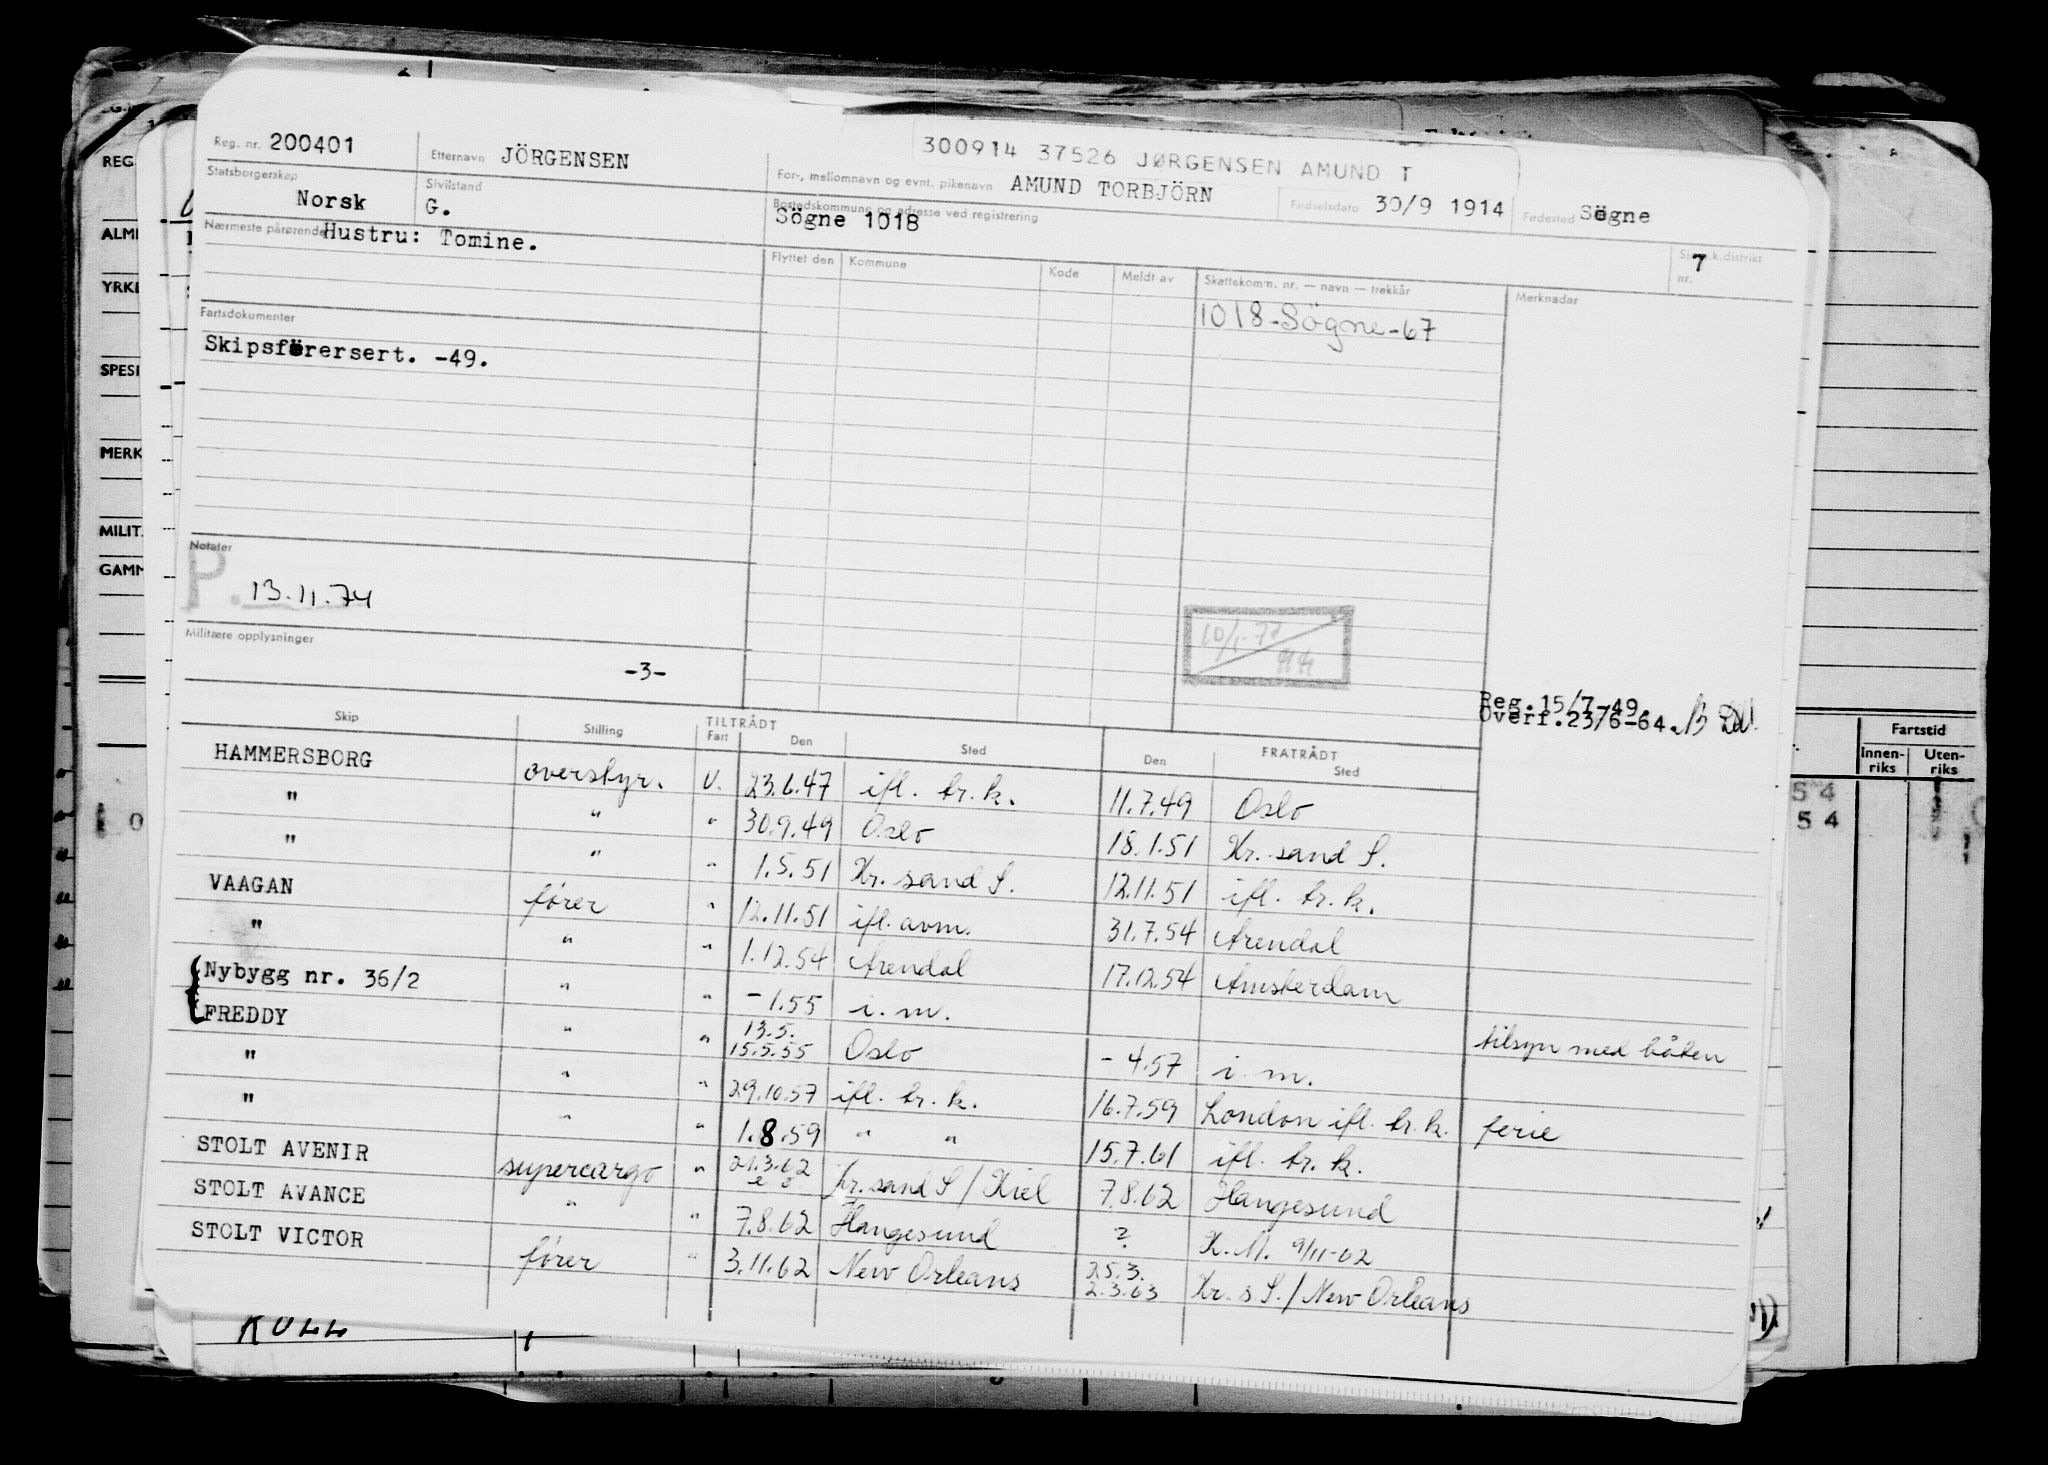 300914 37526 JØRGENSEN AMUND T
Reg. nr. 200401 Etternavn JÖRGENSEN For-, mellomnavn og evnt. pikenavn AMUND TORBJÖRN Fødselsdato 30/9 1914 Fødested Sögne
Statsborgerskap Norsk Sivilstand G. Bostedskommune og adresse ved registrering Sögne 1018
Nærmeste pårørende Hustru: Tomine.
Flyttet den Kommune Kode Meldt av Skattekom'n. nr. — navn — trekkår Merknader Sjøm.k.distrikt nr. 7
1018-Sögne-67
Fartsdokumenter
Skipsförersert. -49.
Notater
P. 13.11.74
10/1-77
Militære opplysninger
-3-
Reg. 15/7-49.
Overf. 23/6-64.
Skip Stilling TILTRÅDT Fart Den Sted FRATRÅDT Den Sted
HAMMERSBORG overstyr. U. 23.6.47 ifl. br. k. 11.7.49 Oslo
" " " 30.9.49 Oslo 18.1.51 Kr. sand S.
" " " 1.5.51 Kr. sand S. 12.11.51 ifl. br. k.
VAAGAN fører " 12.11.51 ifl. avm. 31.7.54 Arendal
" " " 1.12.54 Arendal 17.12.54 Amsterdam
Nybygg nr. 36/2 " " - 1.55 i. m.
FREDDY " " 13.5. 15.5.55 Oslo - 4.57 i. m. tilsyn med båten
" " " 29.10.57 ifl. br. k. 16.7.59 London ifl. br. k. ferie
" " " 1.8.59 " " 15.7.61 ifl. br. k.
STOLT AVENIR supercargo " 21.3.62 Kr. sand S / Kiel 7.8.62 Haugesund
STOLT AVANCE " " 7.8.62 Haugesund ? K. M. 9/11-62
STOLT VICTOR fører " 3.11.62 New Orleans 25.3. 2.3.63 Kr. s S. / New Orleans
REG
ALM
YRKE
SPESI
MERK
MILIT.
GAMM
Fartstid
Innen-riks Uten-riks
54
54